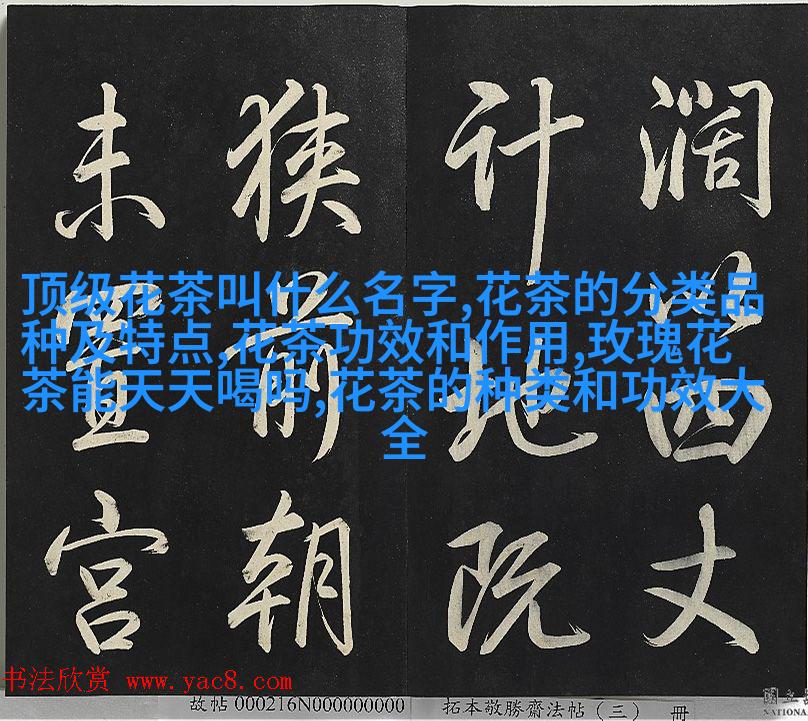 濶以四丈
计地既
狭前朝
未置宫
顶级花茶叫什么名字,花茶的分类品
种及特点,花茶功效和作用,玫瑰花
茶能天天喝吗,花茶的种类和功效大
全
书法欣赏 www.yac8.com
故帖000216N000000000 拓本敬勝齋法帖(三) 冊